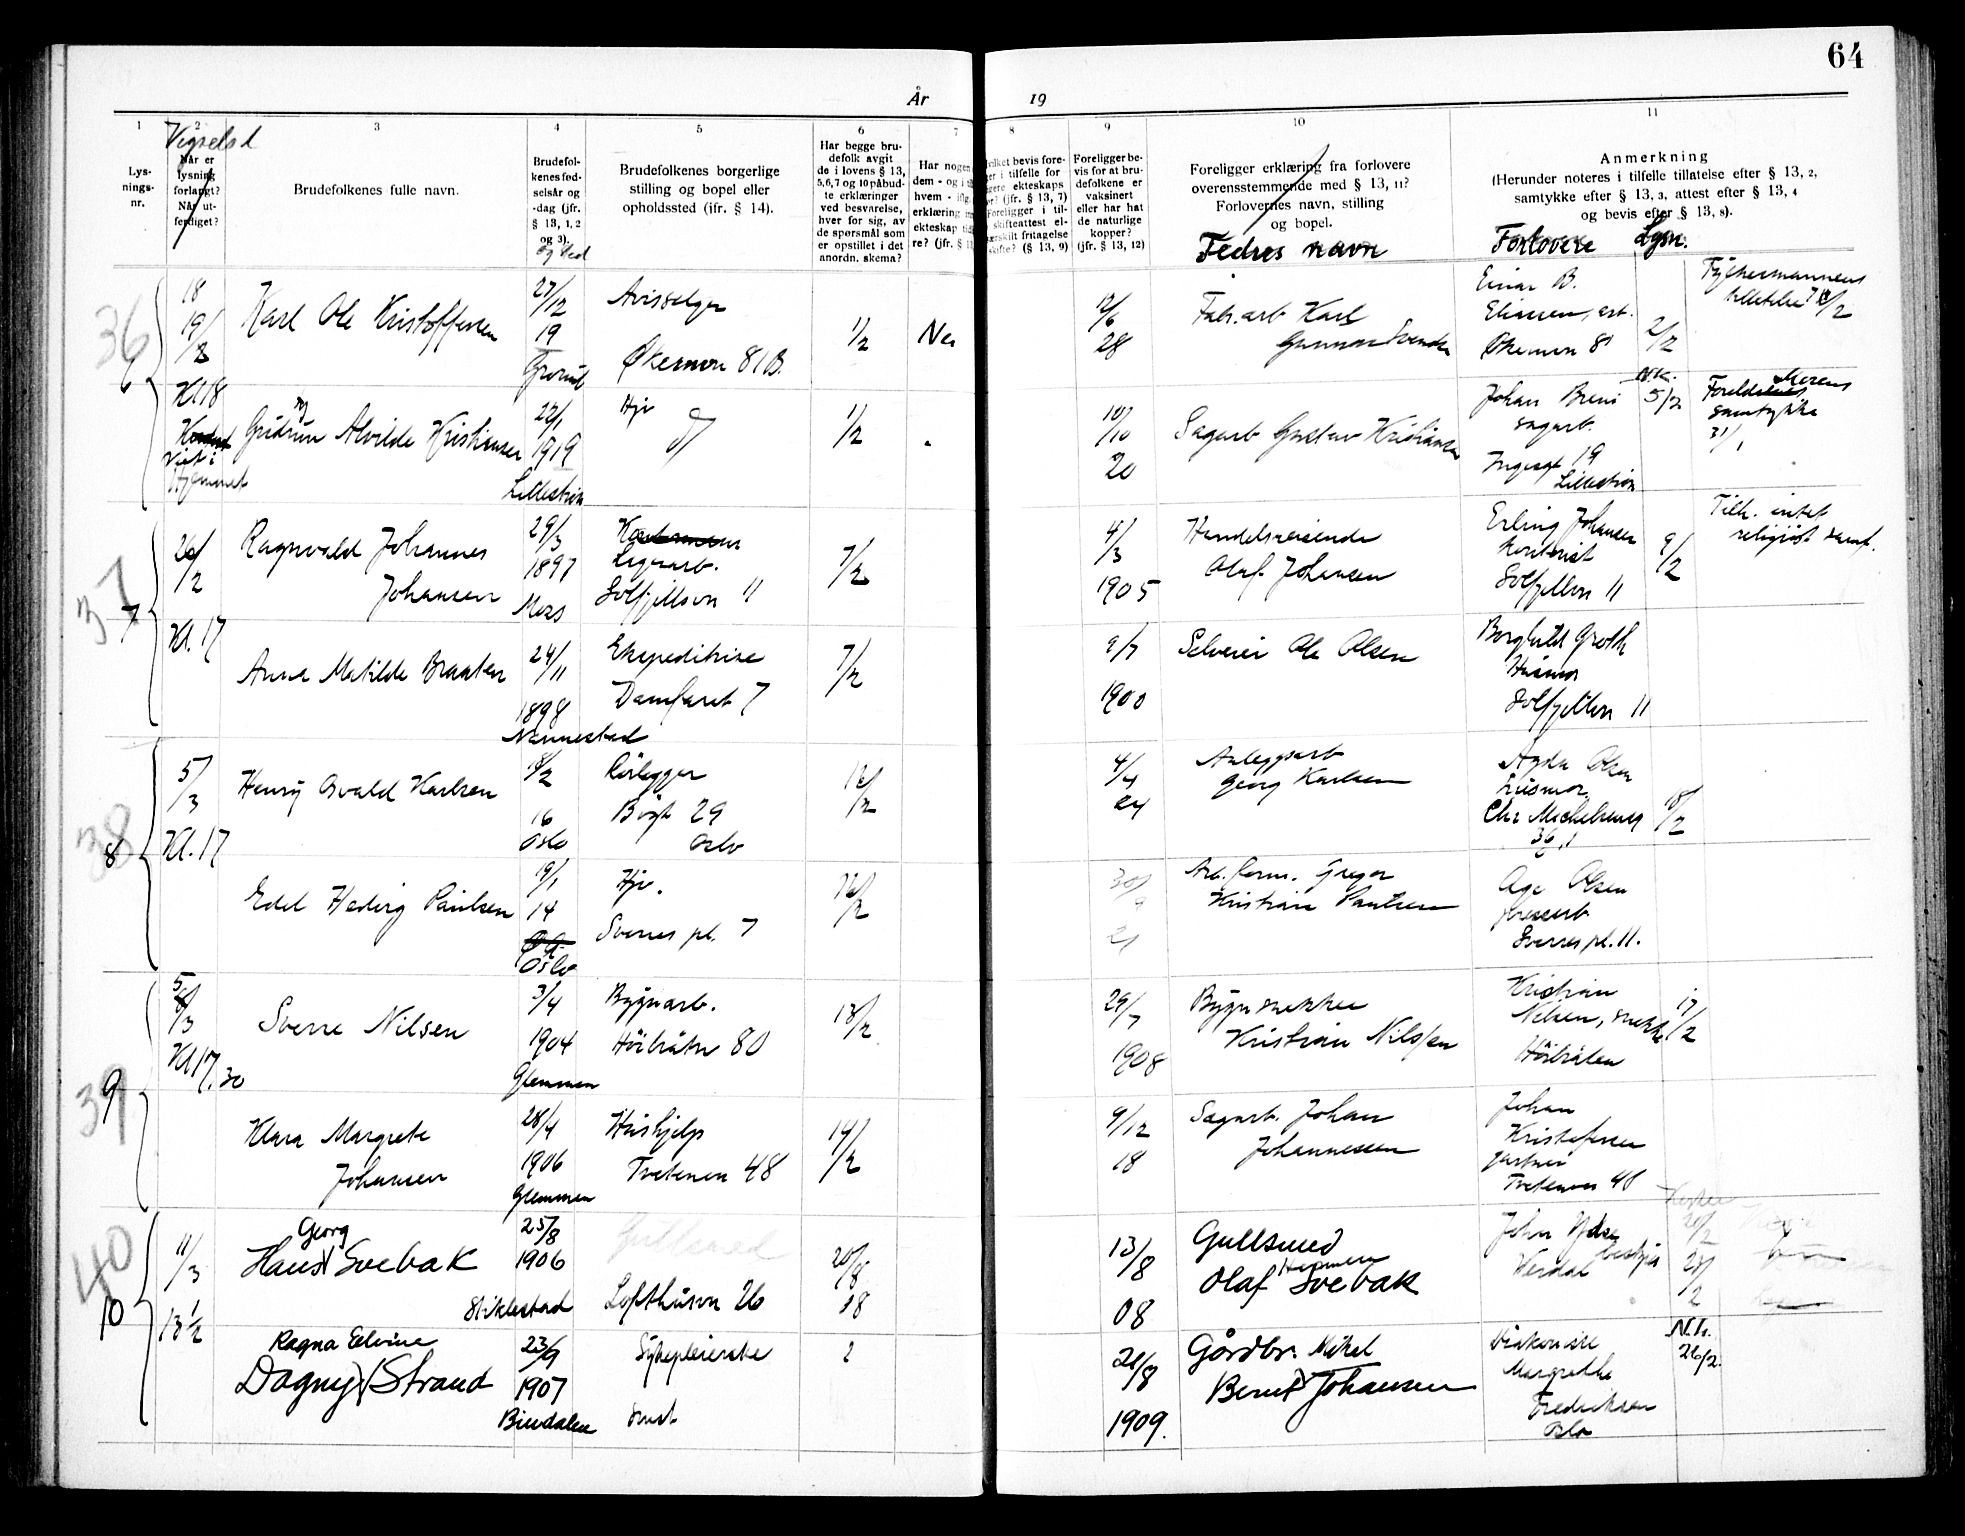 64
År 19
1 2 3 4 5 6 7 8 9 10 11
Vigselsd
Lys-
nings-
nr.
Når er
lysning
forlangt?
Når ut-
ferdiget?
Brudefolkenes fulle navn.
Brudefol-
kenes fød-
selsår og
-dag (jfr.
§ 13, 1, 2
og 3).
og sted
Brudefolkenes borgerlige
stilling og bopel eller
opholdssted (jfr. § 14).
Har begge bru-
defolk avgit
de i lovens § 13,
5, 6, 7 og 10 påbud-
te erklæringer
ved besvarelse,
hver for sig, av
de spørsmål som
er opstillet i det
anordn. skema?
Har nogen
dem - og i
hvem -
erklæring
ekteskap
re? (jfr. §
hvilket bevis fore-
ger i tilfelle for
ekteskaps
(jfr. § 13, 7)
Foreligger i til-
skifteattest el-
særskilt fritagelse
skifte? (§ 13, 9)
Foreligger be-
vis for at bru-
defolkene er
vaksinert
eller har hat
de naturlige
kopper?
(jfr. § 13, 12)
Foreligger erklæring fra forlovere
overensstemmende med § 13, 11?
Forlovernes navn, stilling
og bopel.
Fedres navn
Anmerkning
(Herunder noteres i tilfelle tillatelse efter § 13, 2,
samtykke efter § 13, 3, attest efter § 13, 4
og bevis efter § 13, 8).
Forlovere Lysn.
36
6
18
19/2
Kl 18
Viet i
Hjemmet
Karl Ole Kristoffersen
27/12
19
Grorud
Avisselger
Økernvn 81 B.
1/2
Nei
12/6
28
Fabr.arb Karl
Gunnar Svendsen
Einar B.
Eliassen, arb.
Økernvn 81
2/2
Fylkesmannens
tillatelse
Gudrun Alvilde Kristiansen
22/1
1919
Lillestrøm
Hjv
1/2
10/10
20
Sagarb Gustav Kristiansen
Johan
sagarb.
19
Lillestrøm
N.K.
5/2
Foreldrenes
Morens
samtykke
31/1
37
7
26/2
Kl. 17
Ragnvald Johannes
Johansen
29/3
1897
Moss
Lagerarb.
Solfjellsvn 11
7/2
4/3
1905
Handelsreisende
Olaf Johansen
Erling Johansen
Kontorist
Solfjellvn 11
9/2
Tilh. intet
religiøst samf.
Anna Matilde Braaten
24/11
1898
Nannestad
Ekspeditrise
Damfaret 7
7/2
9/7
1900
Selveier Ole Olsen
Borghild Groth
Husmor
Solfjellvn 11
38
8
5/3
Kl. 17
Henry Osvald Karlsen
8/2
16
Oslo
Rørlegger
Bøgt 29
Oslo
12/2
4/4
24
Anleggsarb
Georg Karlsen
Agda Olsen
husmor
Chr Michelsensg
36
18/2
Edel Hedvig Paulsen
19/1
14
Oslo
Hjv.
Sverres pl. 7
12/2
30/9
21
Arb.form. Gregor
Kristian Paulsen
Åge Olsen
Sverres pl. 11.
39
9
5/3
Kl 17.30
Sverre Nilsen
3/4
1904
Glemmen
Bygn.arb.
Høibråtn 80
13/2
29/7
1908
Bygn snekker
Kristian Nilssen
Kristian
Nilsen, snekker
Høibråten
17/2
Klara Margrete
Johansen
28/4
1906
Glemmen
Hushjelp
Tvetenvn 48
14/2
9/12
18
Sagarb. Johan
Johannessen
Johan
Kristofersen
gartner
Tvetenvn 48
40
10
11/3
13 1/2
Georg
Hans Svebak
Stiklestad
25/8
1906
Gullsmed
Lofthusvn 26
13/8
08
Gullsmed
Olaf Svebak
John
Verdal
Ragna Edvine
Dagny Strand
23/9
1907
Bindalen
Sykepleierske
2
28/8
1909.
Gårdbr. Mikal
Bernt Johansen
Diakonisse
Margrethe
Fredriksen
Oslo
N.K.
26/2.